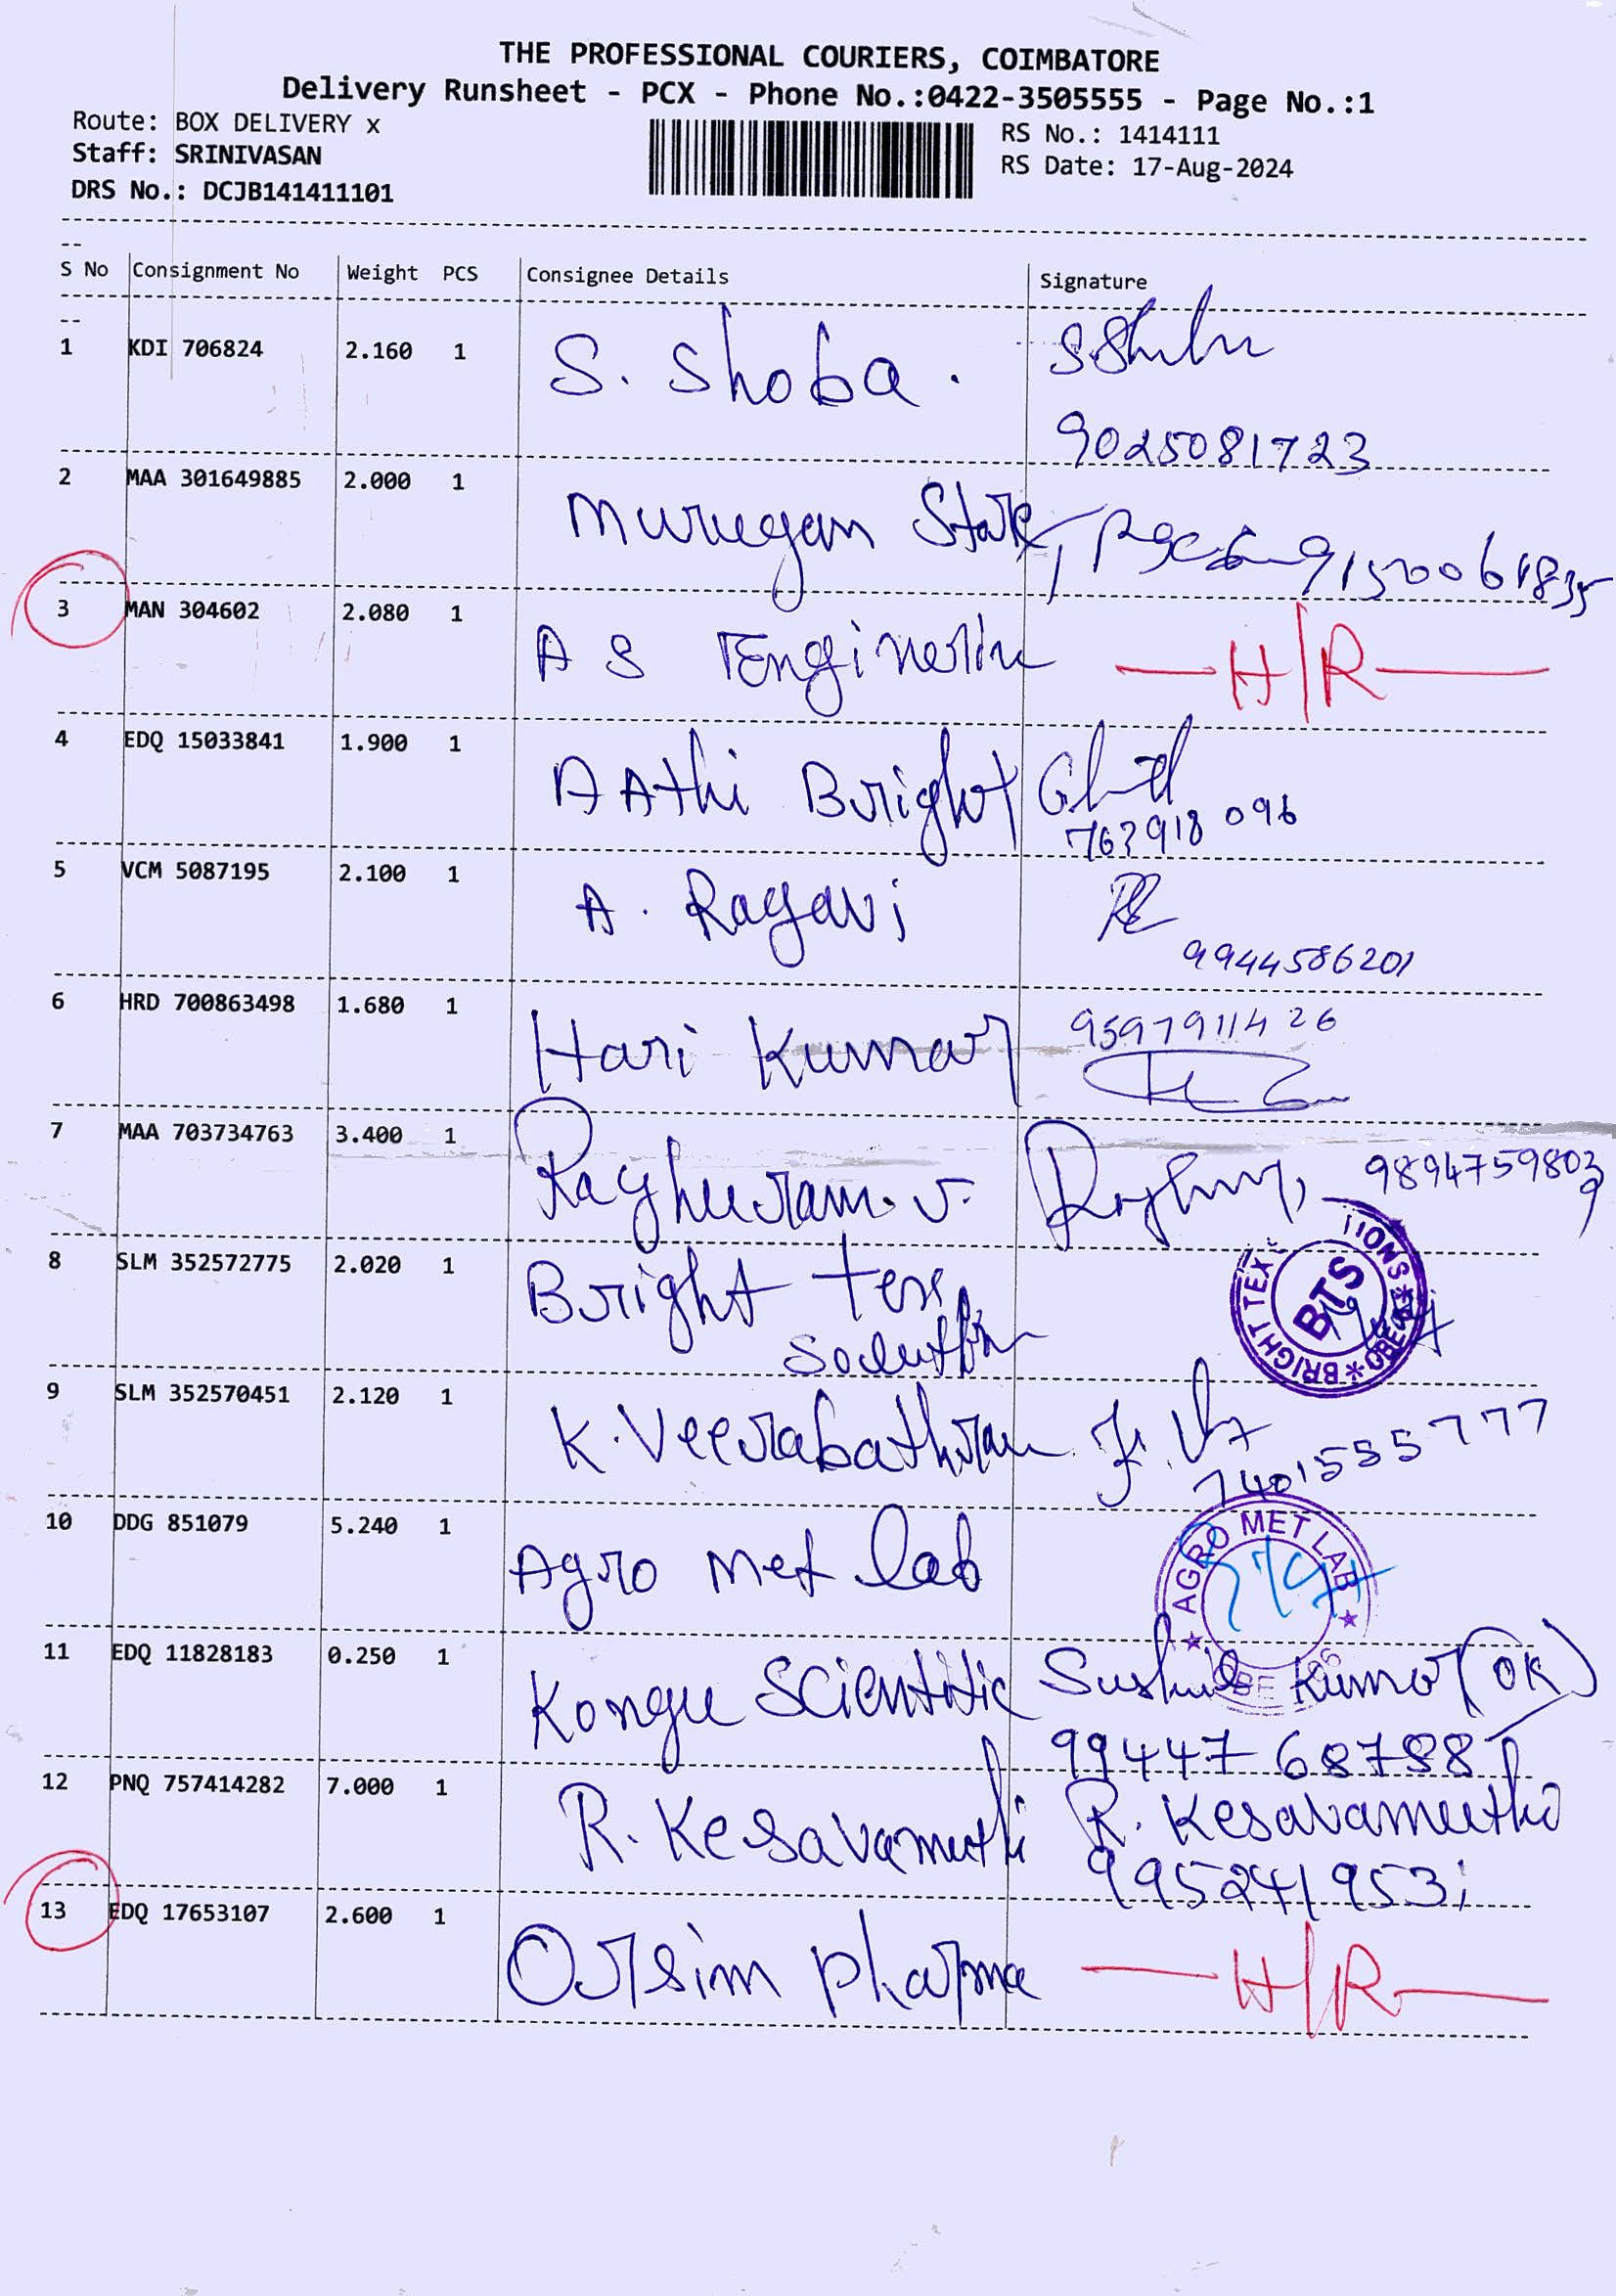 THE PROFESSIONAL COURIERS, COIMBATORE
Delivery Runsheet - PCX - Phone No.:0422-3505555 - Page No.:1
Route: BOX DELIVERY x
Staff: SRINIVASAN
DRS No.: DCJB141411101
RS No.: 1414111
RS Date: 17-Aug-2024
--
S No Consignment No Weight PCS Consignee Details Signature
--
1 KDI 706824 2.160 1 S. Shoba.
9025081723
2 MAA 301649885 2.000 1 Murugan Store
3 MAN 304602 2.080 1 A S Enginerin H/R
4 EDQ 15033841 1.900 1 AAthi Bright
5 VCM 5087195 2.100 1 A. Ragavi
9944586201
6 HRD 700863498 1.680 1 Hari Kumar 9597911426
7 MAA 703734763 3.400 1 Raghuram. v.
8 SLM 352572775 2.020 1 Bright tex
BRIGHT TEX
BTS
9 SLM 352570451 2.120 1 K. Veerabathran
7401555777
10 DDG 851079 5.240 1 Agro Met lab
AGRO MET LAB
11 EDQ 11828183 0.250 1 Kongu Scientific Sushil Kumar (OK)
99447 68788
12 PNQ 757414282 7.000 1 R. Kesavamuthi R. Kesavamuthi
13 EDQ 17653107 2.600 1 Orsim pharma H/R